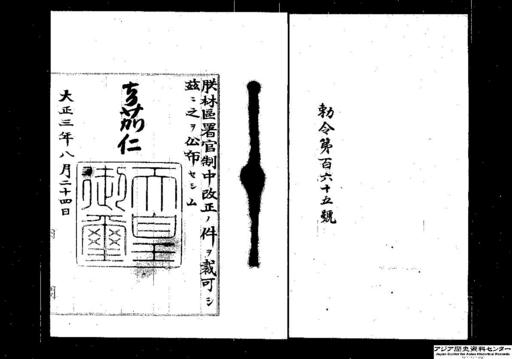 勅令第百六十五號
朕林區署官制中改正ノ件ヲ裁可シ
玆ニ之ヲ公布セシム
嘉仁
天皇御璽
大正三年八月二十四日
アジア歴史資料センター
Japan Center for Asian Historical Records